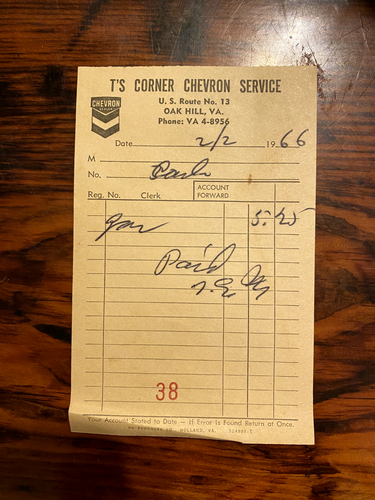 T'S CORNER CHEVRON SERVICE
CHEVRON
U. S. Route No. 13
OAK HILL, VA.
Phone: VA 4-8956
Date 2/2 1966
M
No. Cash
Reg. No. Clerk ACCOUNT FORWARD
gas 5.25
Paid
38
Your Account Stated to Date — If Error Is Found Return at Once.
HOLLAND, VA.